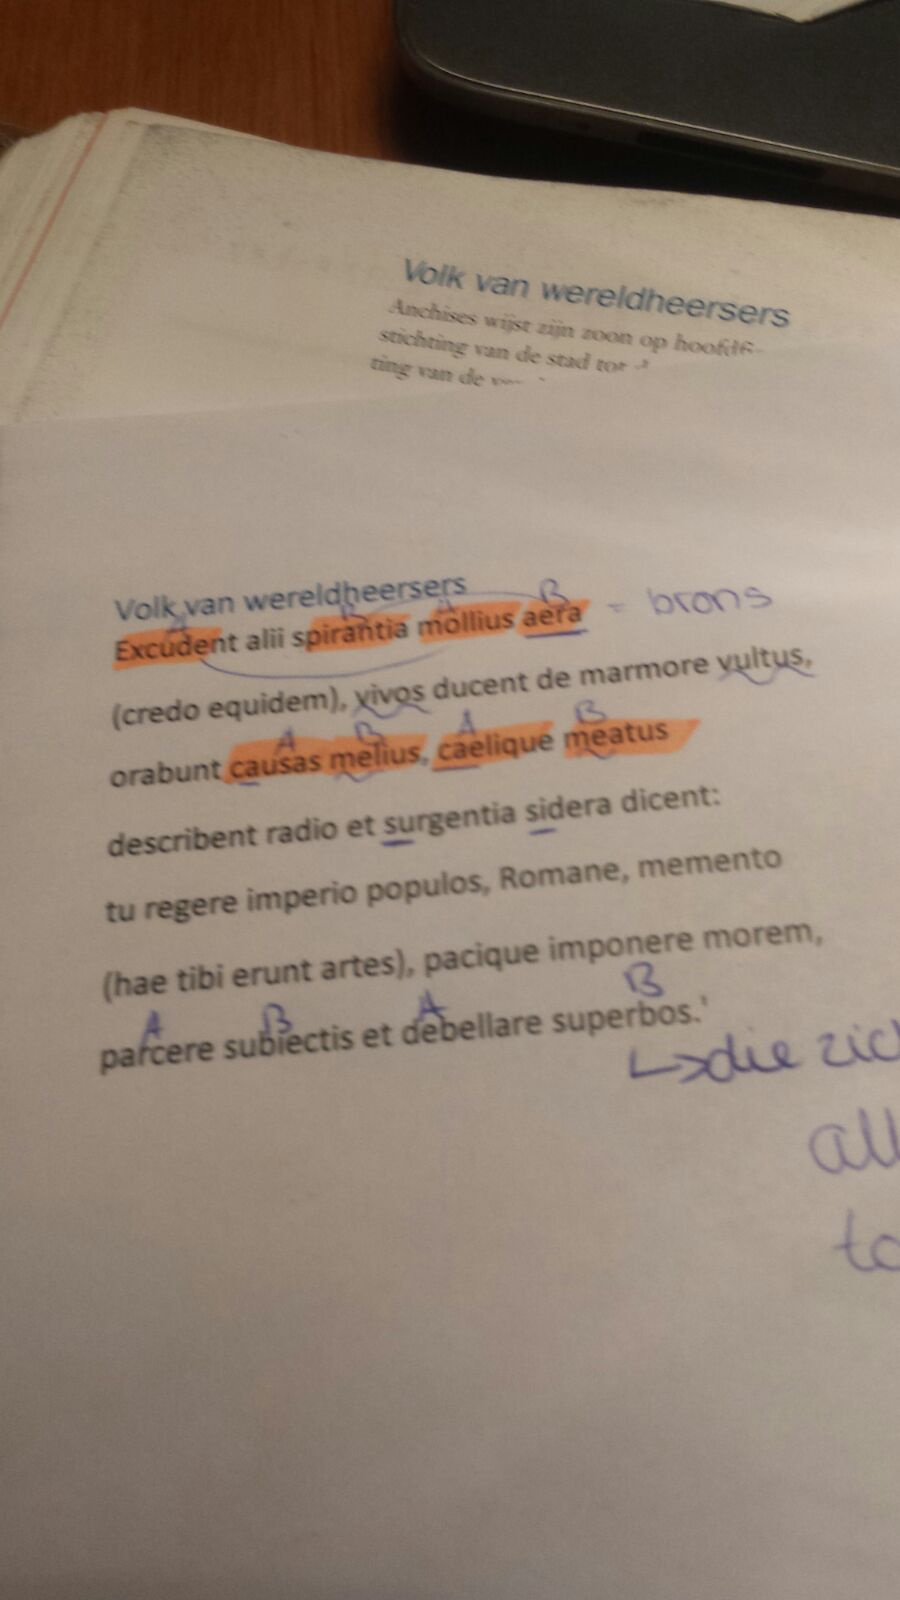 Volk van wereldheersers
Anchises wijst zijn zoon op
stichting van de stad
ting van de
Volk van wereldheersers
A B A B
Excudent alii spirantia mollius aera = brons
(credo equidem), vivos ducent de marmore vultus,
A B A B
orabunt causas melius, caelique meatus
describent radio et surgentia sidera dicent:
tu regere imperio populos, Romane, memento
(hae tibi erunt artes), pacique imponere morem,
A B A B
parcere subiectis et debellare superbos.'
↳die